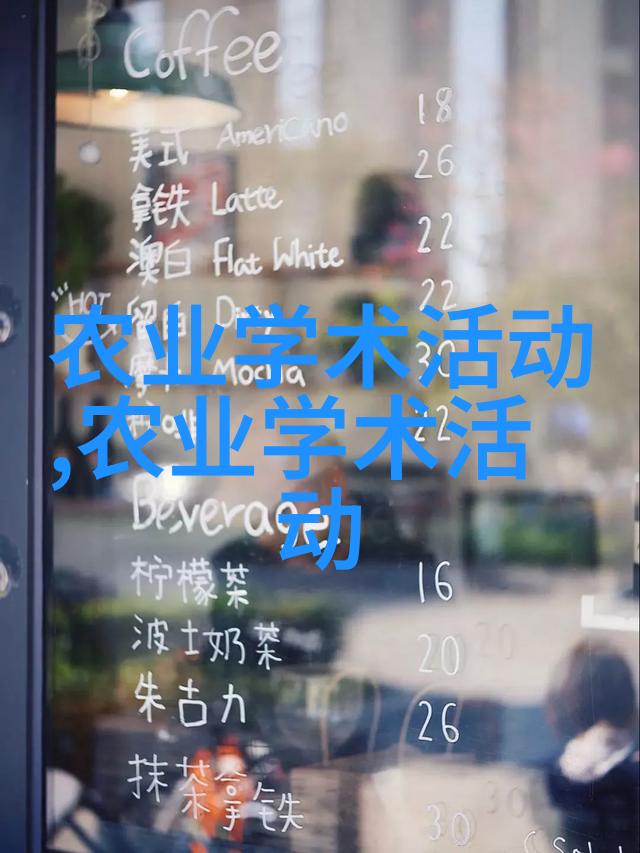 Coffee
美式 Americano 18
拿铁 Latte 26
澳白 Flat White 22
HOT
Dirty 22
Mocha 30
22
农业学术活动
,农业学术活
动
Beverage
柠檬茶 16
波士奶茶 20
朱古力 26
抹茶拿铁 30